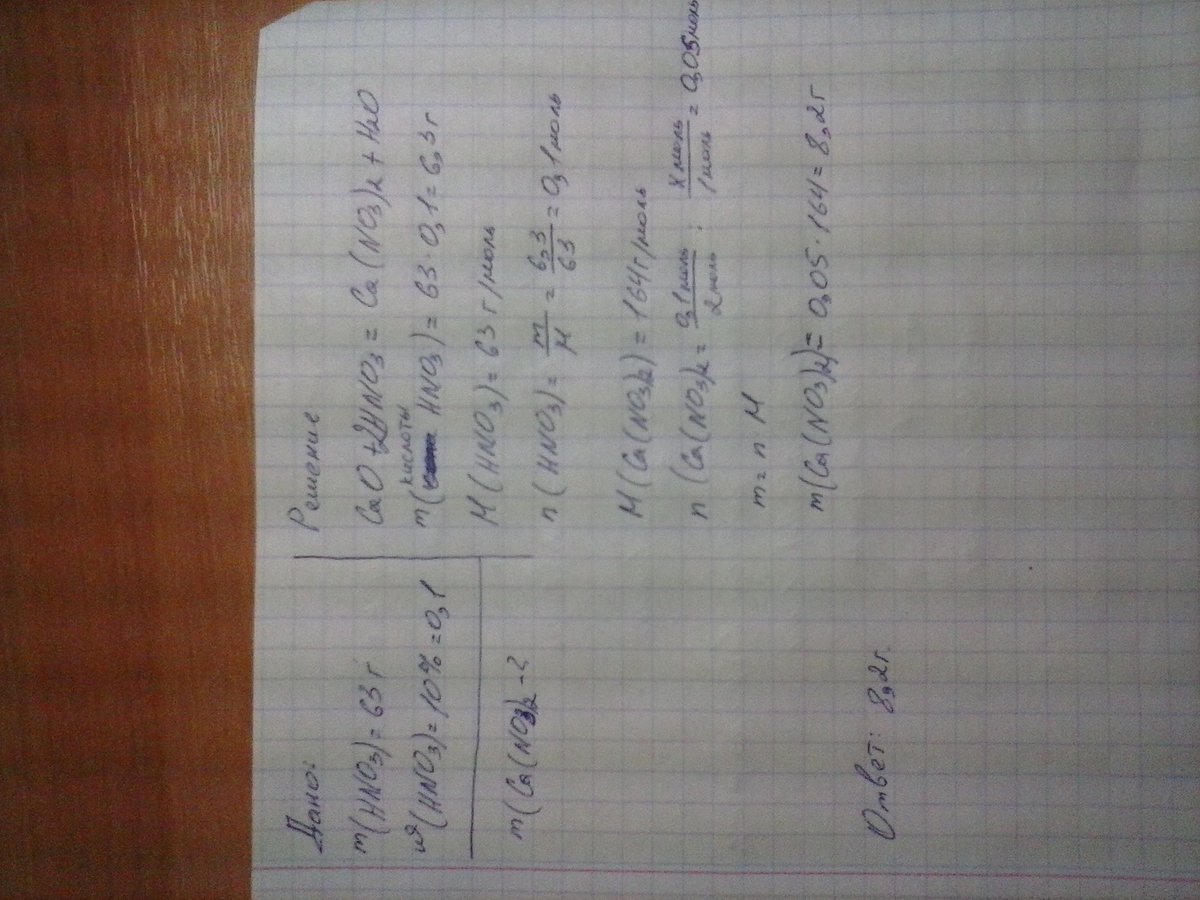 Дано:
m(HNO3)=63 г
ω(HNO3)=10%=0,1
m(Ca(NO3)2-?
Решение
CaO+2HNO3=Ca(NO3)2+H2O
m(кислоты HNO3)=63·0,1=6,3 г
M(HNO3)=63 г/моль
n(HNO3)=m/M=6,3/63=0,1 моль
M(Ca(NO3)2)=164 г/моль
n(Ca(NO3)2=0,1 моль/2 моль : x моль/1 моль=0,05 моль
m=n·M
m(Ca(NO3)2)=0,05·164=8,2 г
Ответ: 8,2 г.